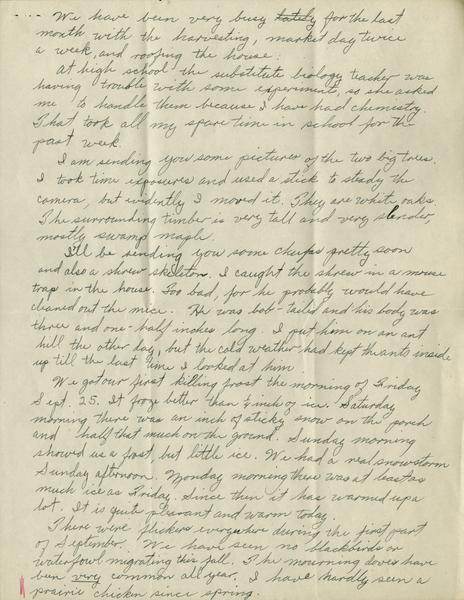 We have been very busy lately for the last
month with the harvesting, market day twice
a week, and roofing the house.
At high school the substitute biology teacher was
having trouble with some experiment, so she asked
me to handle them because I have had chemestry.
That took all my spare time in school for the
past week.
I am sending you some pictures of the two big trees.
I took time exposures and used a stick to steady the
camera, but evidently I moved it. They are white oaks.
The surrounding timber is very tall and very slender,
mostly swamp maple.
I'll be sending you some pretty soon
and also a shrew skeleton. I caught the shrew in a mouse
trap in the house. Too bad, for he probably would have
cleaned out the mice. He was bob-tailed and his body was
three and one-half inches long. I put him on an ant
hill the other day, but the cold weather had kept the ants inside
up till the last time I looked at him
We got our first killing frost the morning of Friday
Sept. 25. It froze better than inch of ice. Saturday
morning there was an inch of sticky snow on the porch
and half that much on the ground. Sunday morning
showed us a frost but little ice. We had a real snowstorm
Sunday afternoon. Monday morning there was at least as
much ice as Friday. Since then it has warmed up a
lot. It is quite pleasant and warm today.
There were flickers everywhere during the first part
of September. We have seen no blackbirds or
waterfowl migrating this fall. The mourning doves have
been very common all year. I have hardly seen a
prairie chicken since spring.